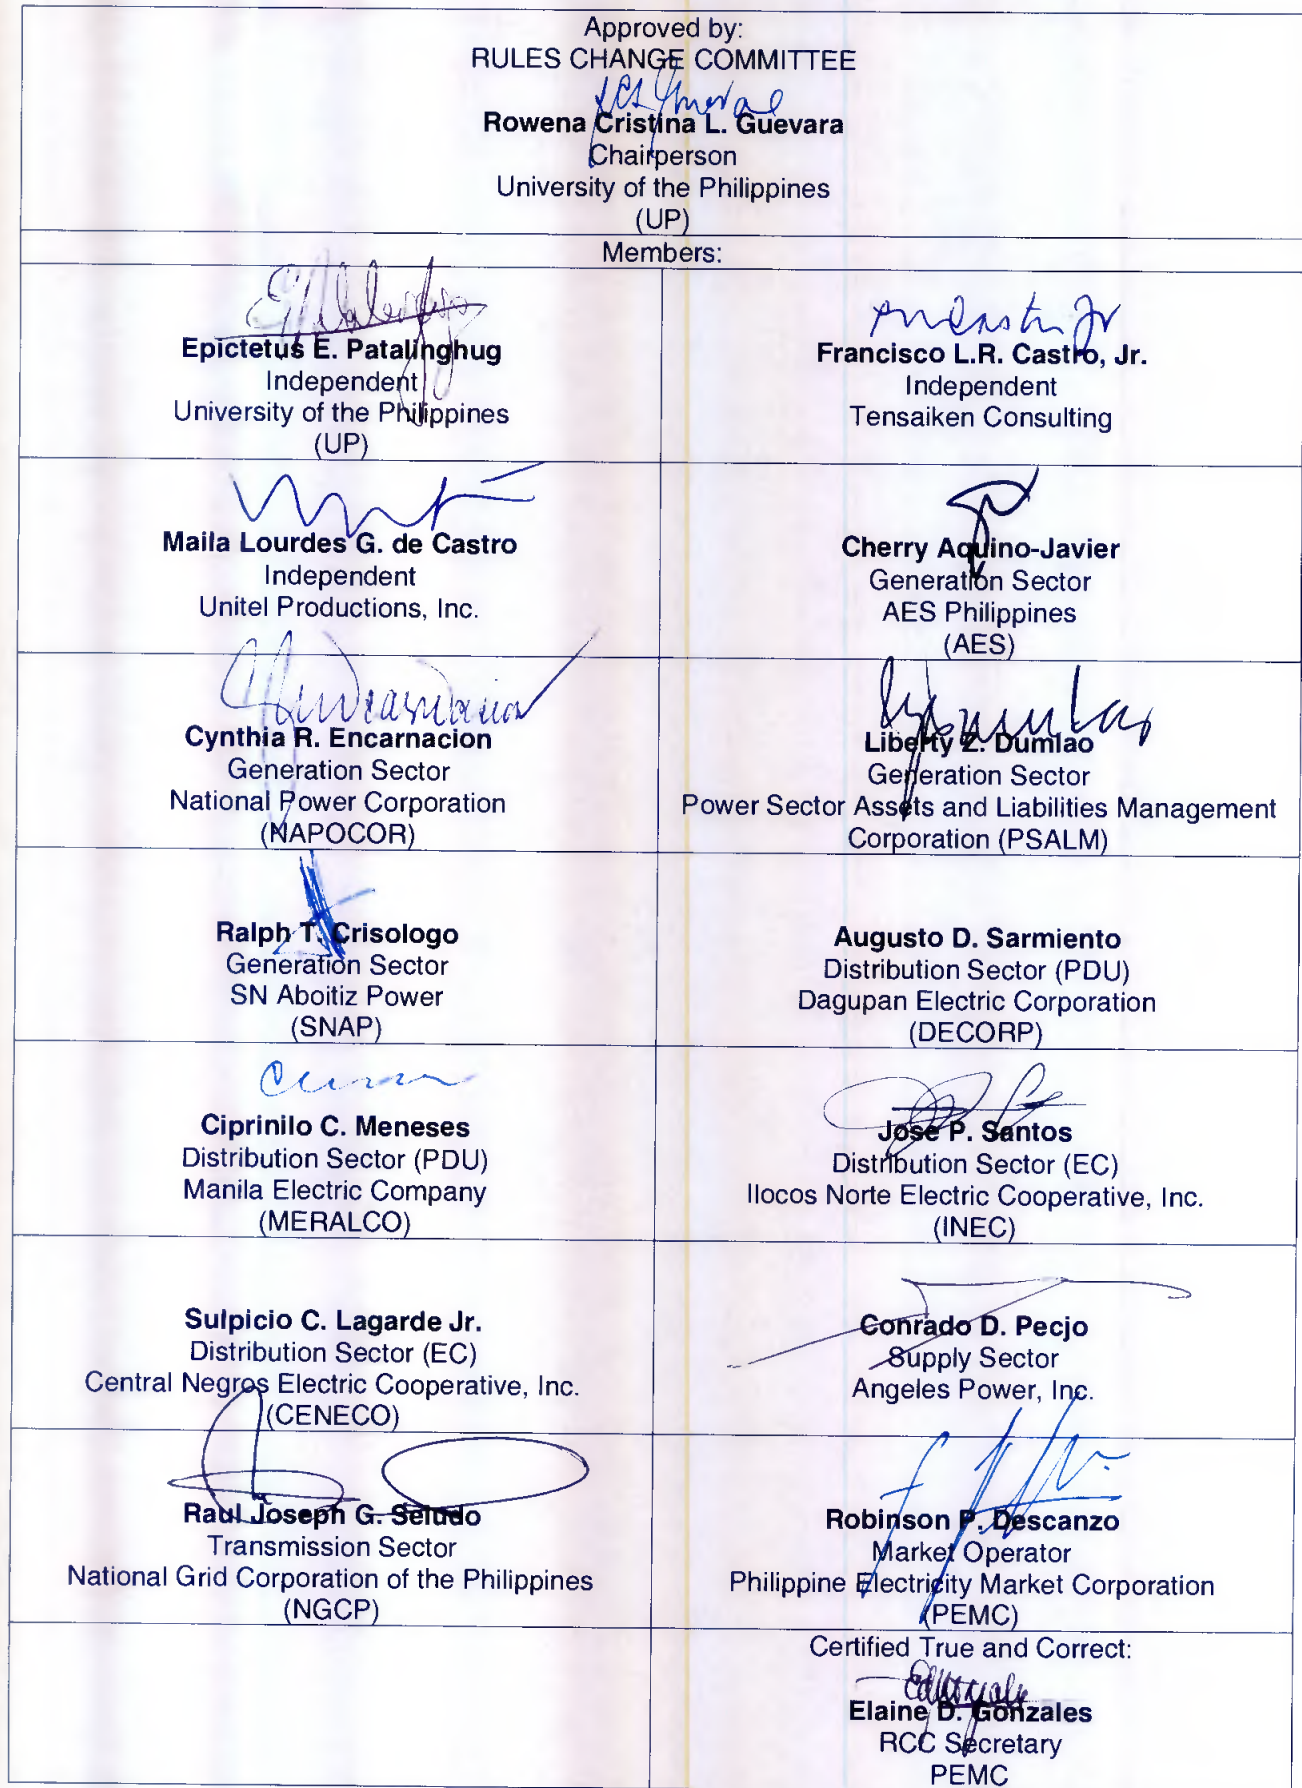 Approved by:
RULES CHANGE COMMITTEE
Rowena Cristina L. Guevara
Chairperson
University of the Philippines
(UP)
Members:
Epictetus E. Patalinghug
Independent
University of the Philippines
(UP)
Francisco L.R. Castro, Jr.
Independent
Tensaiken Consulting
Maila Lourdes G. de Castro
Independent
Unitel Productions, Inc.
Cherry Aquino-Javier
Generation Sector
AES Philippines
(AES)
Cynthia R. Encarnacion
Generation Sector
National Power Corporation
(NAPOCOR)
Liberty Z. Dumlao
Generation Sector
Power Sector Assets and Liabilities Management
Corporation (PSALM)
Ralph T. Crisologo
Generation Sector
SN Aboitiz Power
(SNAP)
Augusto D. Sarmiento
Distribution Sector (PDU)
Dagupan Electric Corporation
(DECORP)
Ciprinilo C. Meneses
Distribution Sector (PDU)
Manila Electric Company
(MERALCO)
Jose P. Santos
Distribution Sector (EC)
Ilocos Norte Electric Cooperative, Inc.
(INEC)
Sulpicio C. Lagarde Jr.
Distribution Sector (EC)
Central Negros Electric Cooperative, Inc.
(CENECO)
Conrado D. Pecjo
Supply Sector
Angeles Power, Inc.
Raul Joseph G. Seludo
Transmission Sector
National Grid Corporation of the Philippines
(NGCP)
Robinson P. Descanzo
Market Operator
Philippine Electricity Market Corporation
(PEMC)
Certified True and Correct:
Elaine D. Gonzales
RCC Secretary
PEMC